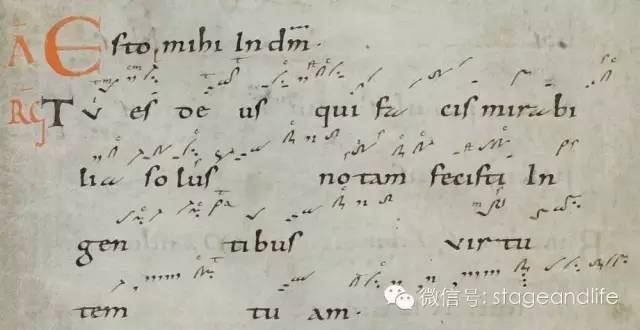 A Esto mihi In dm̄.
RG Tu es de us qui fa cis mirabi
lia solus notam fecisti In
gen tibus virtu
tem tu am.
微信号: stageandlife